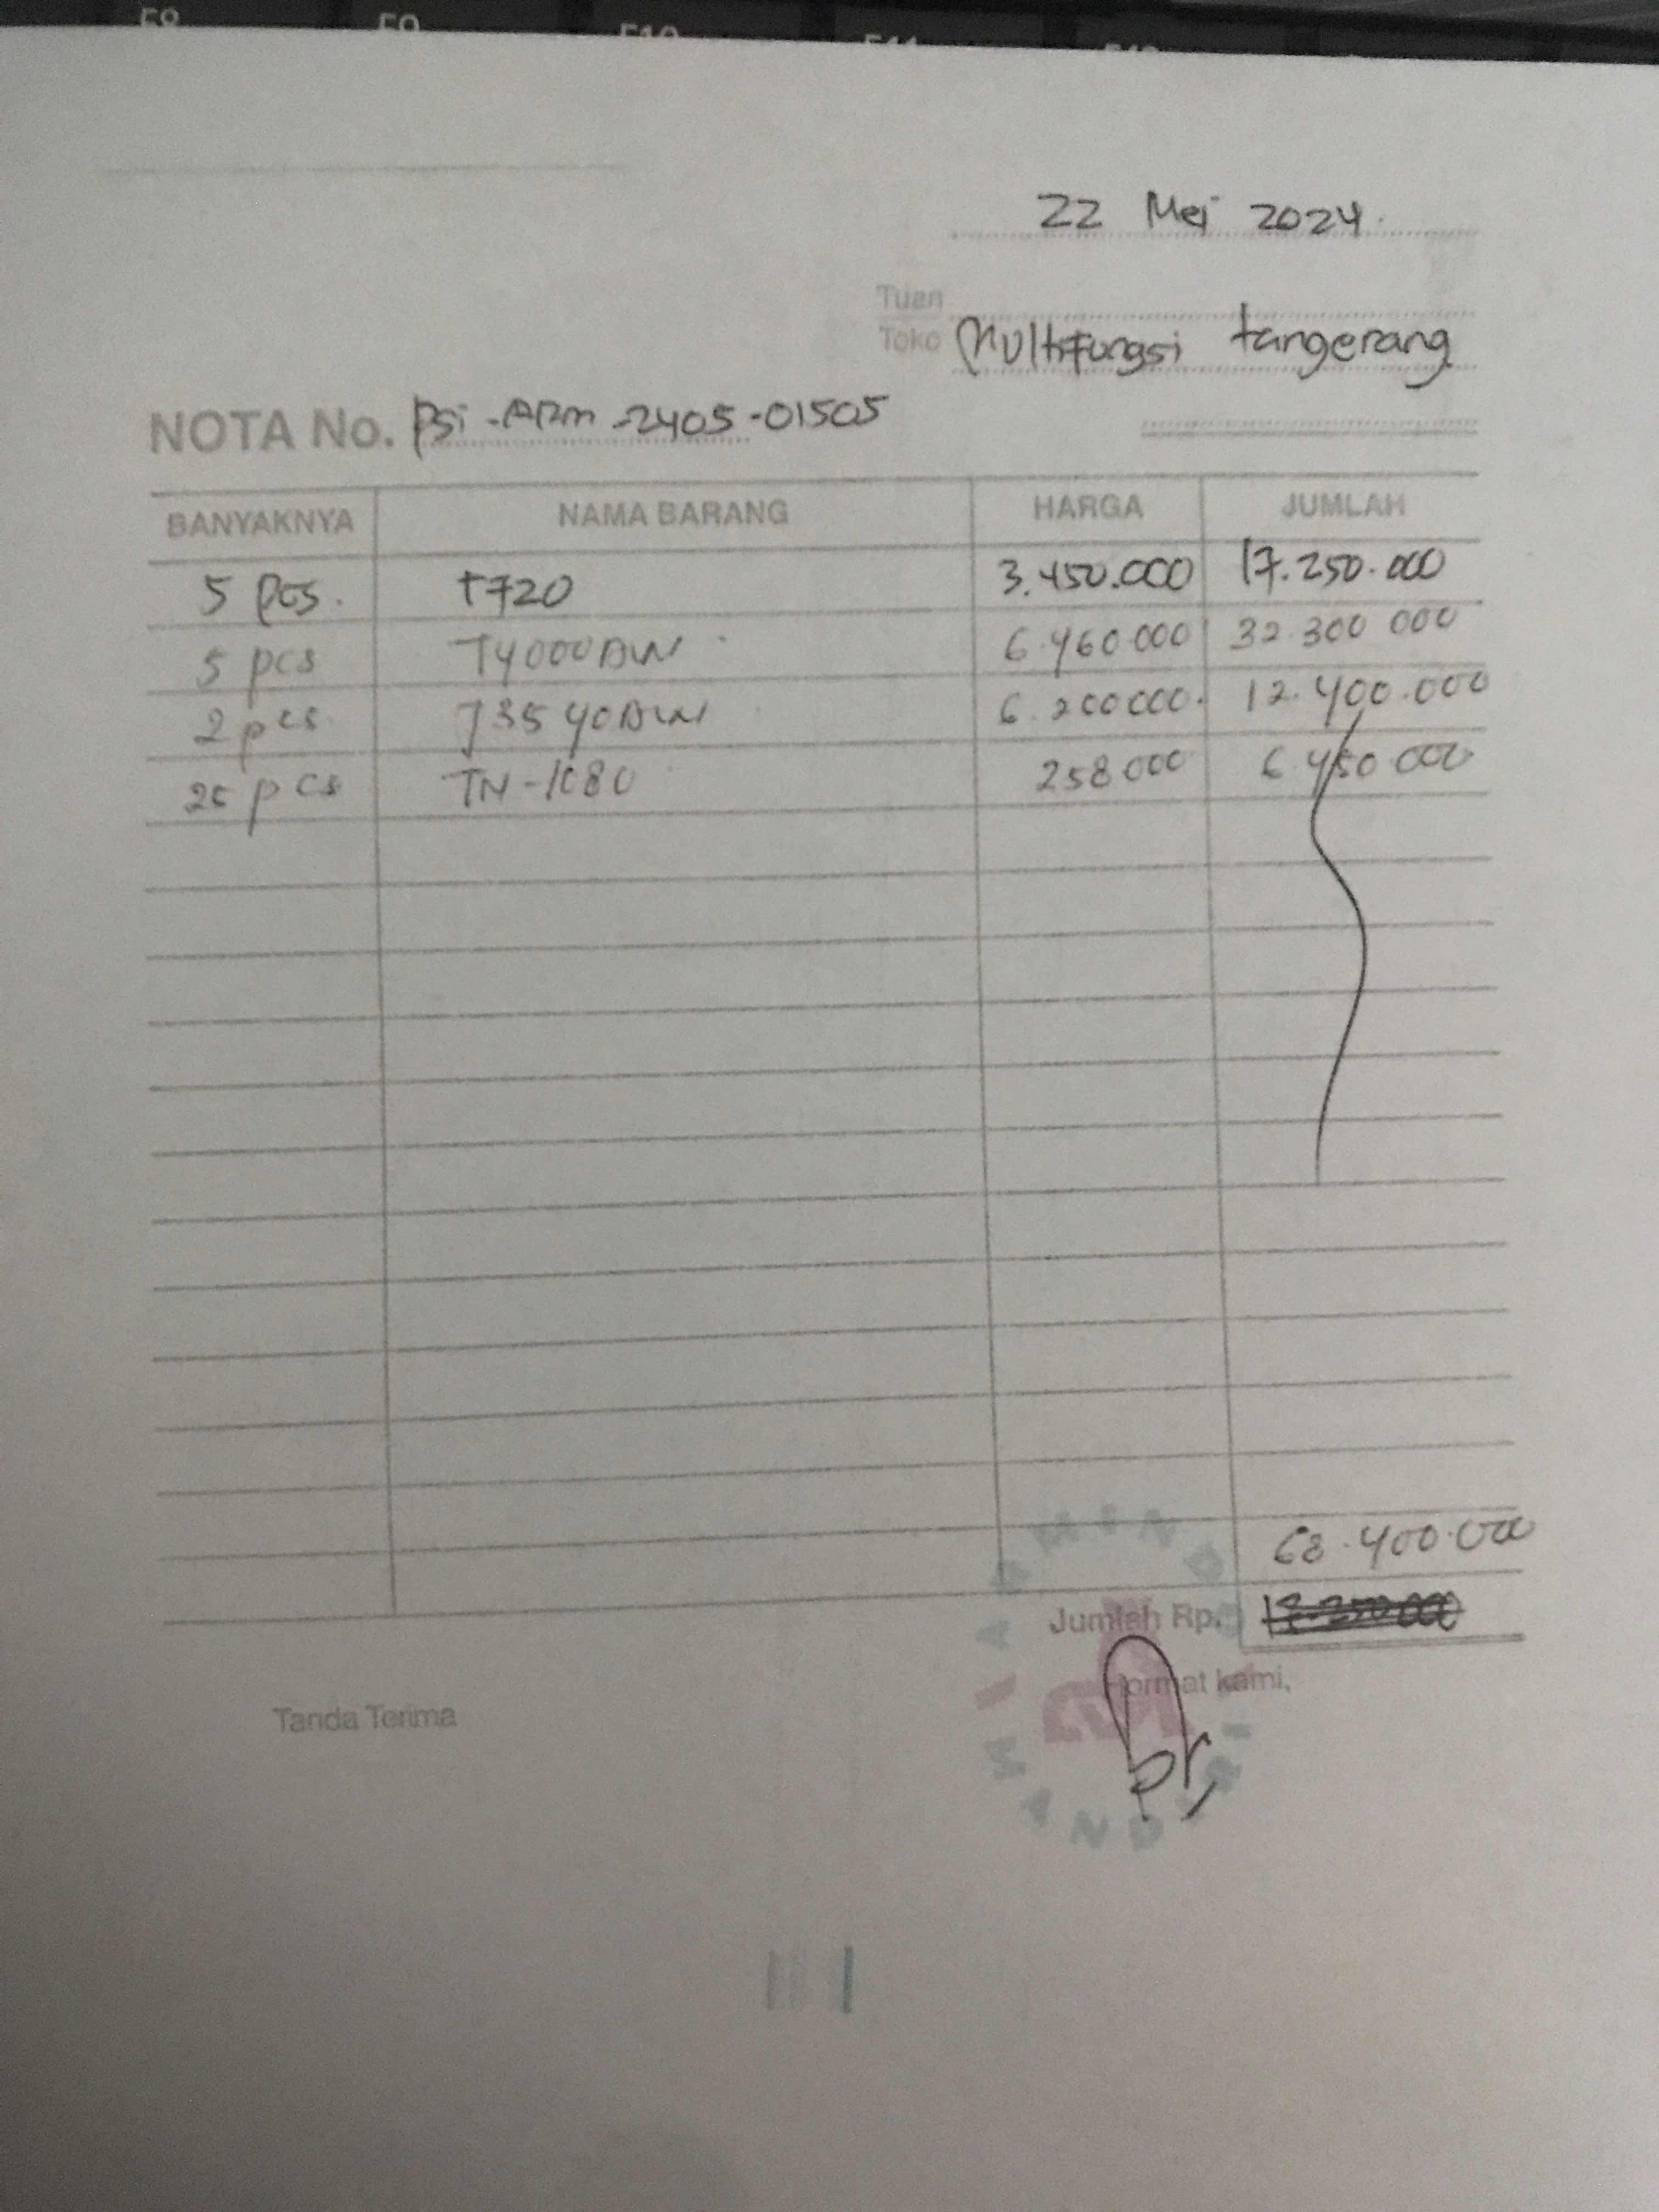 F8 F9 F10 F11 F12
22 Mei 2024
Tuan
Toko Multifungsi tangerang
NOTA No. PSi-ARM-2405-01505
BANYAKNYA NAMA BARANG HARGA JUMLAH
5 pcs. T720 3.450.000 17.250.000
5 pcs T4000DW 6.460.000 32.300.000
2 pcs J3540DW 6.200.000. 12.400.000
25 pcs TN-1080 258.000 6.450.000
68.400.000
Jumlah Rp.
Hormat kami,
Tanda Terima
MANDIRI